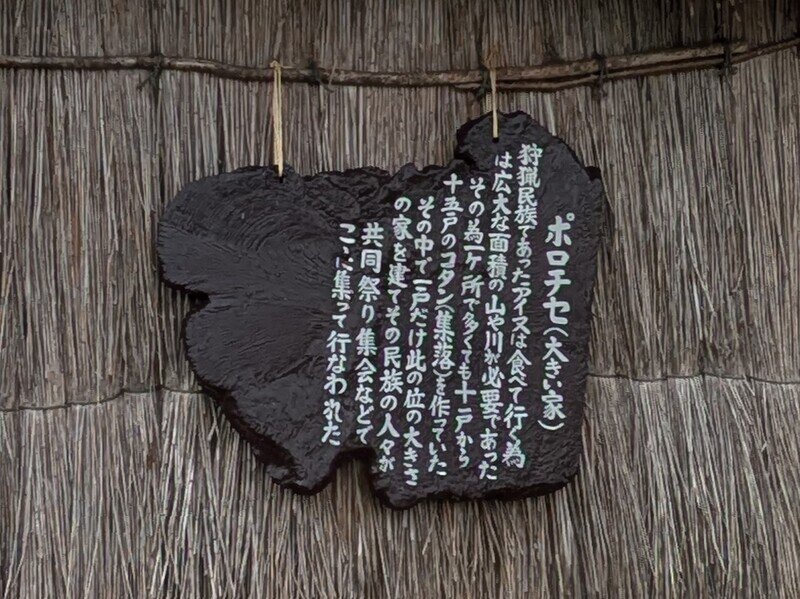 ポロチセ(大きい家)
狩猟民族であったアイヌは食べて行く為
は広大な面積の山や川が必要であった
その為一ケ所で多くても十戸から
十五戸のコタン(集落)を作っていた
その中で一戸だけ此の位の大きさ
の家を建てその民族の人々が
共同祭り集会などで
こゝに集って行なわれた